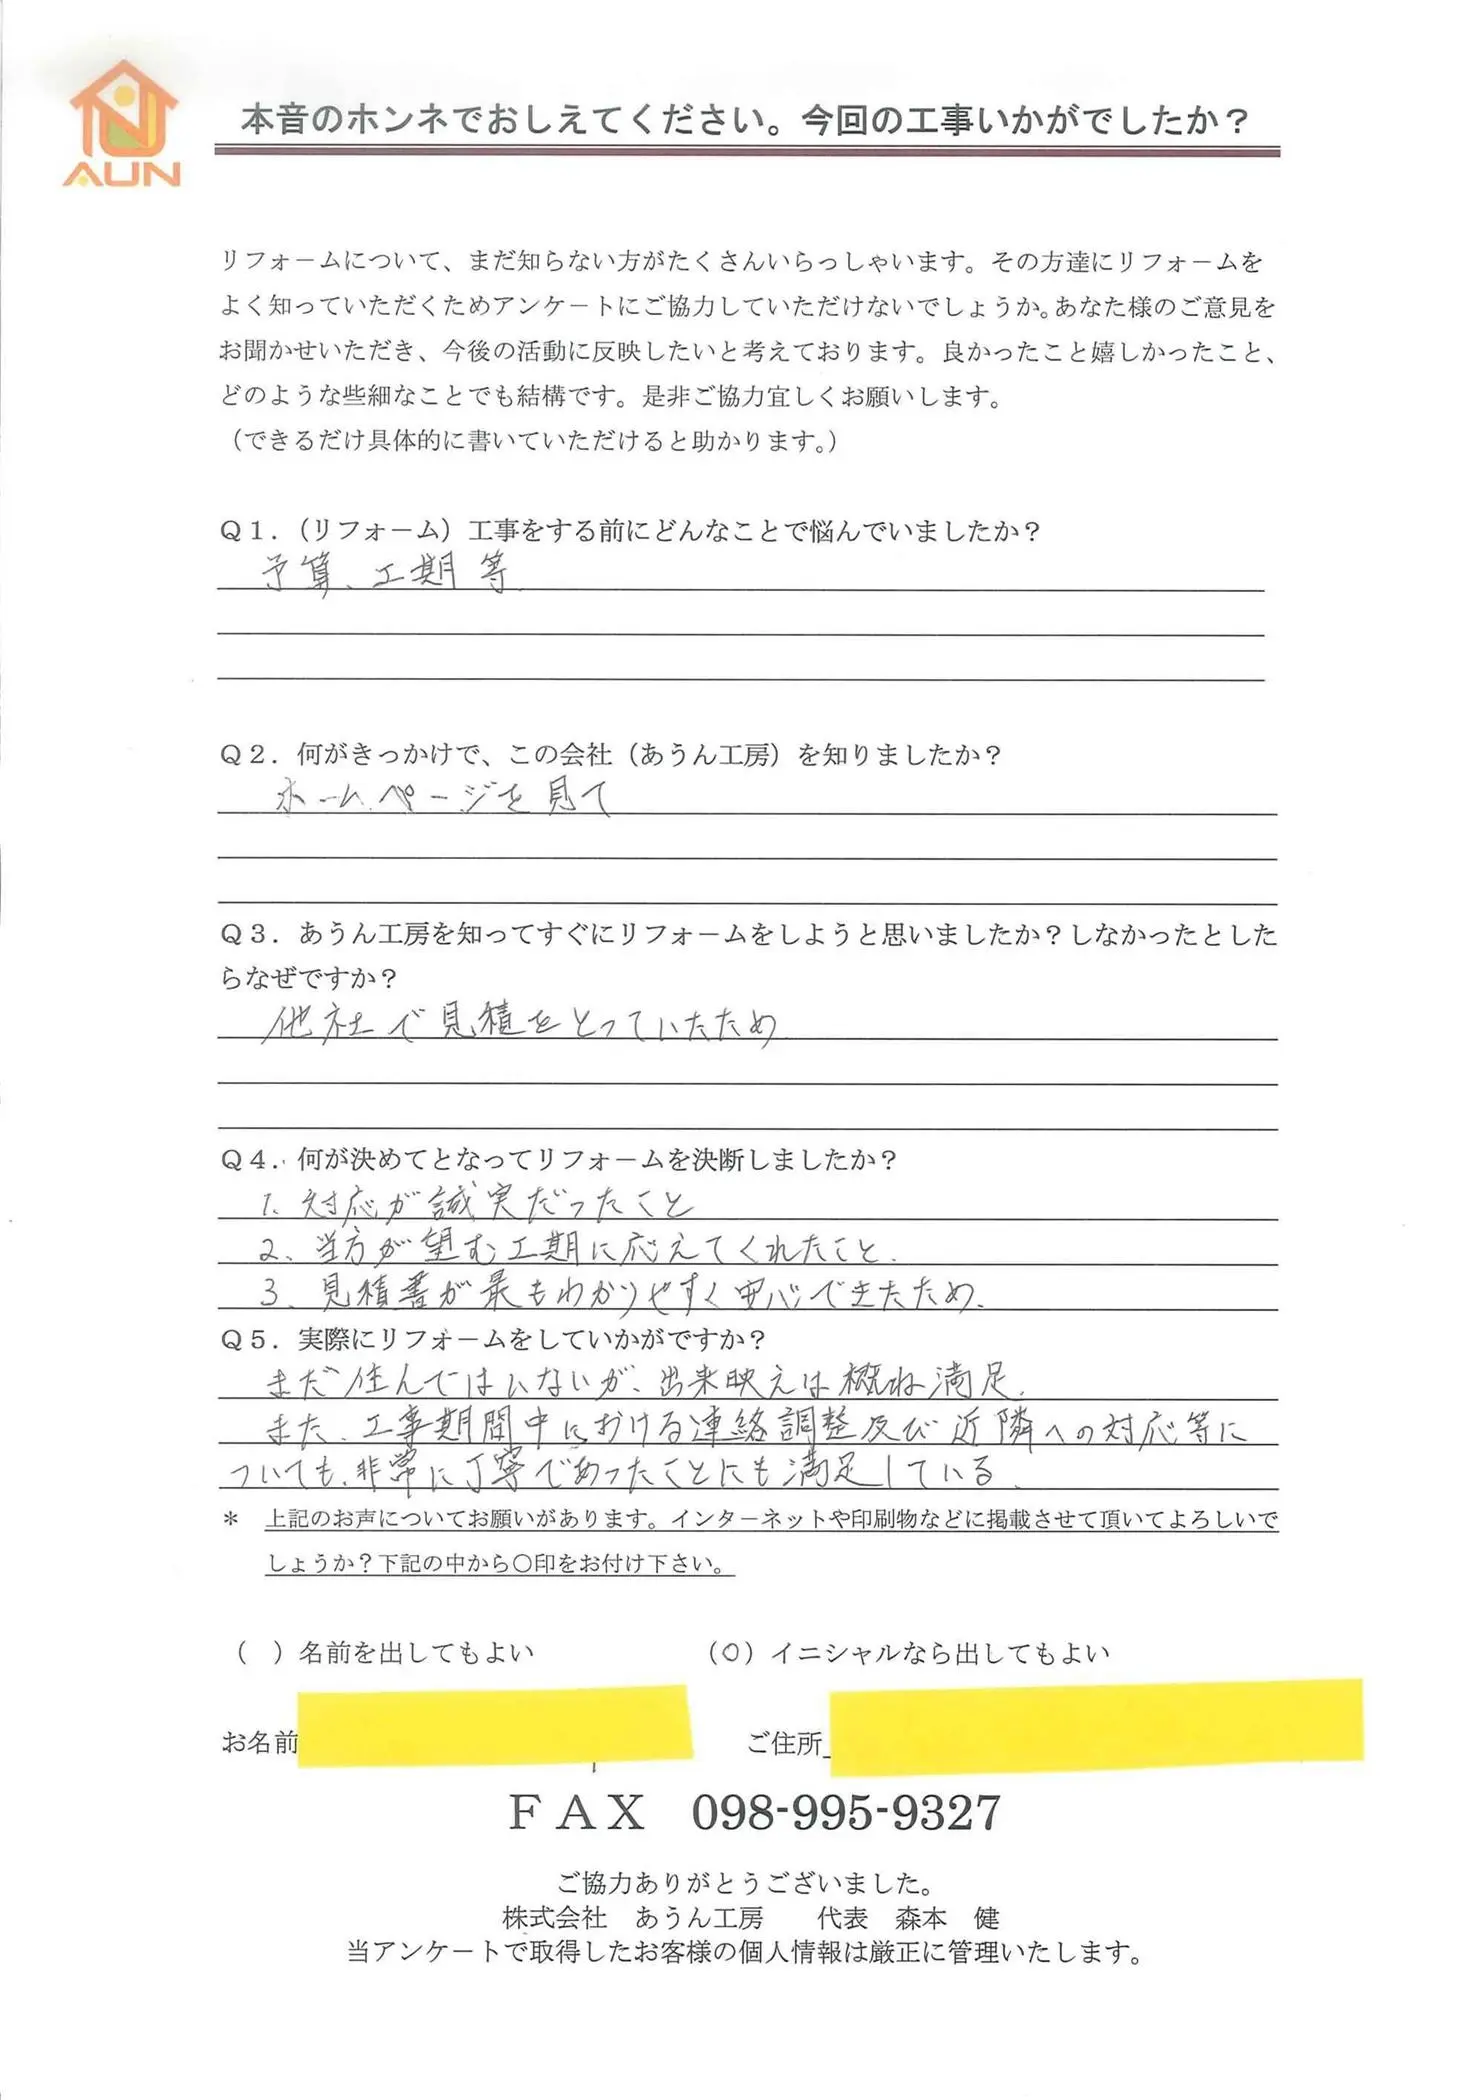 AUN
本音のホンネでおしえてください。今回の工事いかがでしたか？
リフォームについて、まだ知らない方がたくさんいらっしゃいます。その方達にリフォームを
よく知っていただくためアンケートにご協力していただけないでしょうか。あなた様のご意見を
お聞かせいただき、今後の活動に反映したいと考えております。良かったこと嬉しかったこと、
どのような些細なことでも結構です。是非ご協力宜しくお願いします。
（できるだけ具体的に書いていただけると助かります。）
Ｑ１．（リフォーム）工事をする前にどんなことで悩んでいましたか？
予算、工期等
Ｑ２．何がきっかけで、この会社（あうん工房）を知りましたか？
ホームページを見て
Ｑ３．あうん工房を知ってすぐにリフォームをしようと思いましたか？しなかったとした
らなぜですか？
他社で見積をとっていたため
Ｑ４．何が決めてとなってリフォームを決断しましたか？
1、対応が誠実だったこと
2、当方が望む工期に応えてくれたこと、
3、見積書が最もわかりやすく安心できたため、
Ｑ５．実際にリフォームをしていかがですか？
まだ住んではいないが、出来映えは概ね満足。
また、工事期間中における連絡調整及び近隣への対応等に
ついても、非常に丁寧であったことにも満足している。
＊ 上記のお声についてお願いがあります。インターネットや印刷物などに掲載させて頂いてよろしいで
しょうか？下記の中から〇印をお付け下さい。
（ ）名前を出してもよい （O）イニシャルなら出してもよい
お名前 ご住所
ＦＡＸ 098-995-9327
ご協力ありがとうございました。
株式会社 あうん工房 代表 森本 健
当アンケートで取得したお客様の個人情報は厳正に管理いたします。